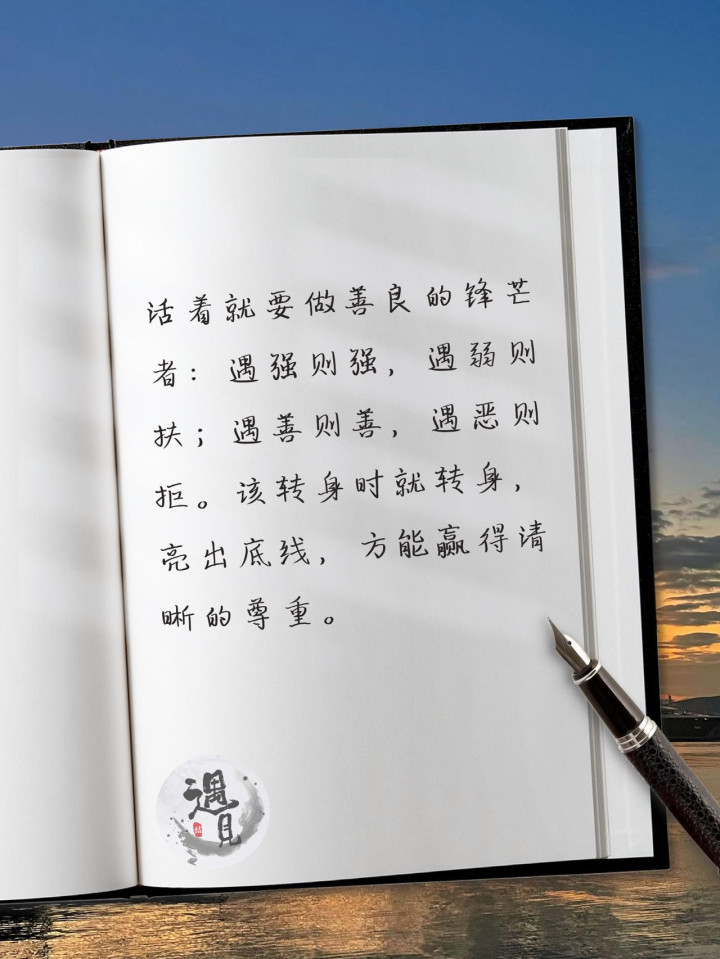 活着就要做善良的锋芒
者：遇强则强，遇弱则
扶；遇善则善，遇恶则
拒。该转身时就转身，
亮出底线，方能赢得清
晰的尊重。
遇見